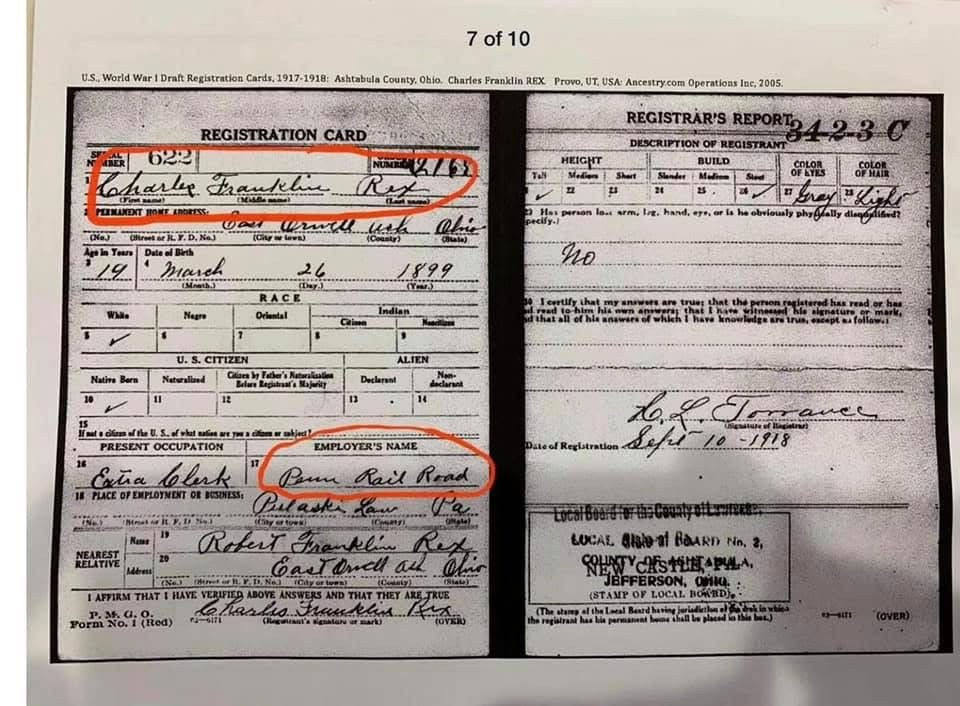 7 of 10
U.S., World War I Draft Registration Cards, 1917-1918: Ashtabula County, Ohio. Charles Franklin REX. Provo, UT, USA: Ancestry.com Operations Inc, 2005.
REGISTRATION CARD
SERIAL NUMBER 622 NUMBER
1 Charles Franklin Rex
(First name) (Middle name) (Last name)
2 PERMANENT HOME ADDRESS:
East Orwell Ash Ohio
(No.) (Street or R. F. D. No.) (City or town) (County) (State)
Age in Years Date of Birth
3 19 4 March 26 1899
(Month.) (Day.) (Year.)
RACE
White Negro Oriental Indian
Citizen Noncitizen
5 ✓ 6 7 8 9
U. S. CITIZEN ALIEN
Native Born Naturalized Citizen by Father's Naturalization Before Registrant's Majority Declarant Non-declarant
10 ✓ 11 12 13 14
15
If not a citizen of the U. S., of what nation are you a citizen or subject?
PRESENT OCCUPATION EMPLOYER'S NAME
16 Extra Clerk 17 Penn Rail Road
18 PLACE OF EMPLOYMENT OR BUSINESS:
Pulaski Law Pa
(No.) (Street or R. F. D. No.) (City or town) (County) (State)
NEAREST RELATIVE
Name 19 Robert Franklin Rex
Address 20 East Orwell Ash Ohio
(No.) (Street or R. F. D. No.) (City or town) (County) (State)
I AFFIRM THAT I HAVE VERIFIED ABOVE ANSWERS AND THAT THEY ARE TRUE
P. M. G. O.
Form No. 1 (Red) Charles Franklin Rex
(Registrant's signature or mark) (OVER)
REGISTRAR'S REPORT
34-2-3 C
DESCRIPTION OF REGISTRANT
HEIGHT BUILD COLOR OF EYES COLOR OF HAIR
Tall Medium Short Slender Medium Stout
✓ 22 23 24 25 26 ✓ 27 Gray 28 Light
29 Has person lost arm, leg, hand, eye, or is he obviously physically disqualified?
specify.)
No
30 I certify that my answers are true; that the person registered has read or has
had read to him his own answers; that I have witnessed his signature or mark,
and that all of his answers of which I have knowledge are true, except as follows:
H. L. Torrance
(Signature of Registrar)
Date of Registration Sept 10 - 1918
Local Board for the County of Lawrence,
State of
NEW CASTLE, PA.
LOCAL BOARD No. 2,
COUNTY OF ASHTABULA,
JEFFERSON, OHIO.
(STAMP OF LOCAL BOARD)
(The stamp of the Local Board having jurisdiction of the area in which
the registrant has his permanent home shall be placed in this box.)
(OVER)